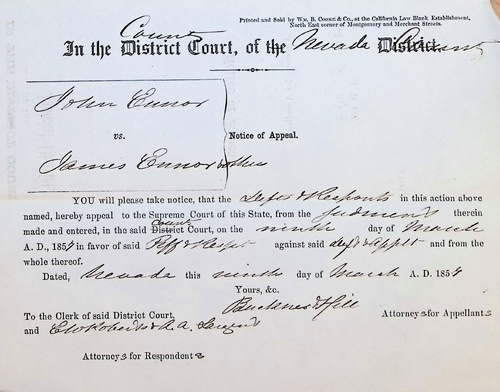 Printed and Sold by WM. B. COOKE & CO., at the California Law Blank Establishment,
North East corner of Montgomery and Merchant Streets.
County
In the District Court, of the Nevada District.
John Ennor
vs.
Notice of Appeal.
James Ennor & others
YOU will please take notice, that the Defts & Respondts in this action above
named, hereby appeal to the Supreme Court of this State, from the Judgment therein
County
made and entered, in the said District Court, on the ninth day of March
A. D., 185 in favor of said Plff & Respt against said deft & applt and from the
whole thereof.
Dated, Nevada this ninth day of March A. D. 185
Yours, &c.
Buckner & Hill
Attorneys for Appellants
To the Clerk of said District Court,
and E W Roberts & A. A. Sargent
Attorneys for Respondents